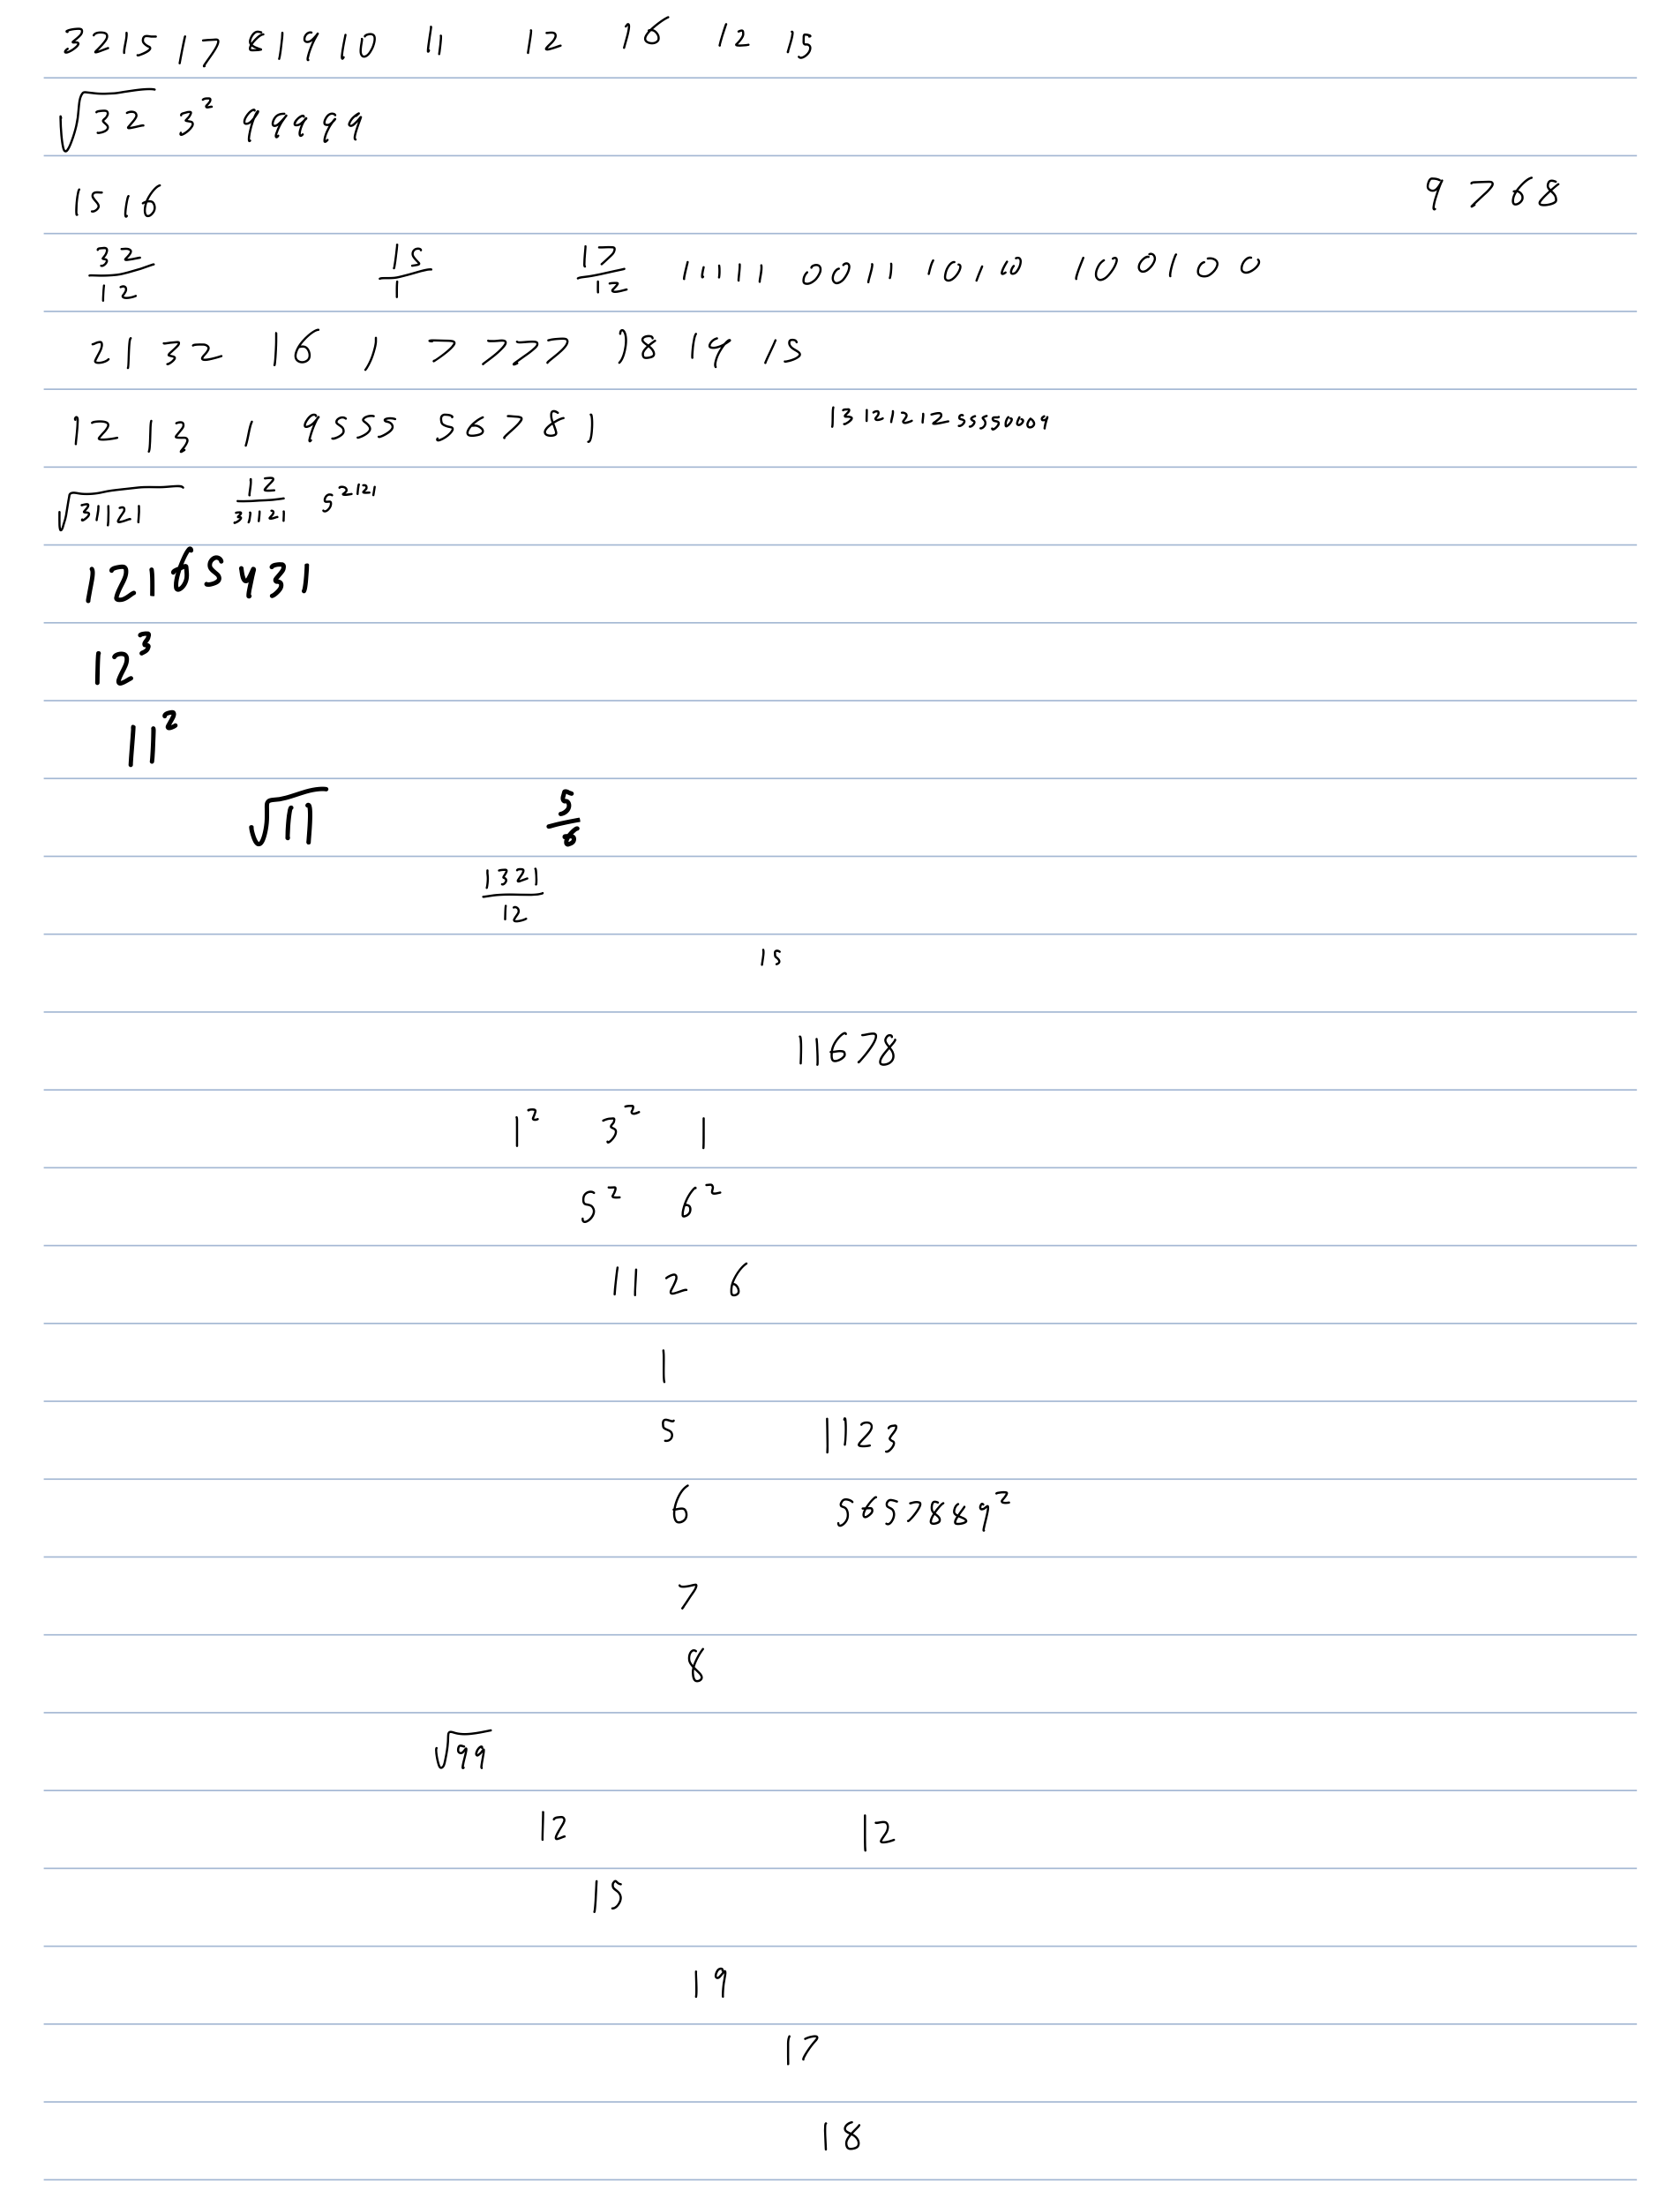 3215 17 81910 11 12 16 12 15
√32 3² 99999
1516 9768
32/12 15/1 17/12 11111 0011 10110 100100
2132 16 1 7 777 18 19 15
12 13 1 9555 56781 1312121255550009
√31121 12/31121 5²¹²¹
12165431
12³
11²
√11 5/6
1321/12
15
11678
1² 3² 1
5² 6²
11 2 6
1
5 1123
6 5657889²
7
8
√99
12 12
15
19
17
18